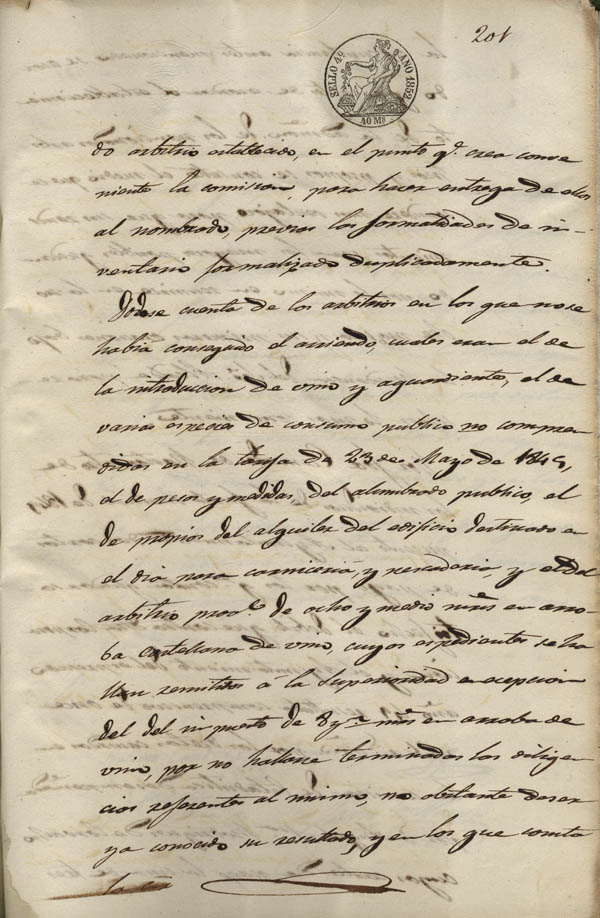 201
SELLO 4º AÑO 1852
40 Ms.
do arbitrio establecido, en el punto qe. crea conve
niente la comision, para hacer entrega de ellos
al nombrado, previas las formalidades de in-
ventario formalizado duplicadamente.
Diose cuenta de los arbitrios en los que no se
habia conseguido el arriendo, cuales eran el de
la introduccion de vino y aguardiente, el de
varias especies de consumo publico no compren
didas en la tarifa de 23 de Mayo de 1845,
el de pesos y medidas, del alumbrado publico, el
de propios del alquiler del edificio destinado en
el dia para carniceria, y pescaderia, y el del
arbitrio prov.l de ocho y medio mrs en arro-
ba castellana de vino, cuyos espedientes se ha
llan remitidos á la Superioridad a escepcion
del del impuesto de 8 y mrs en arroba de
vino, por no hallarse terminadas las diligen
cias referentes al mismo, no obstante de ser
ya conocido su resultado, y en los que consta
la